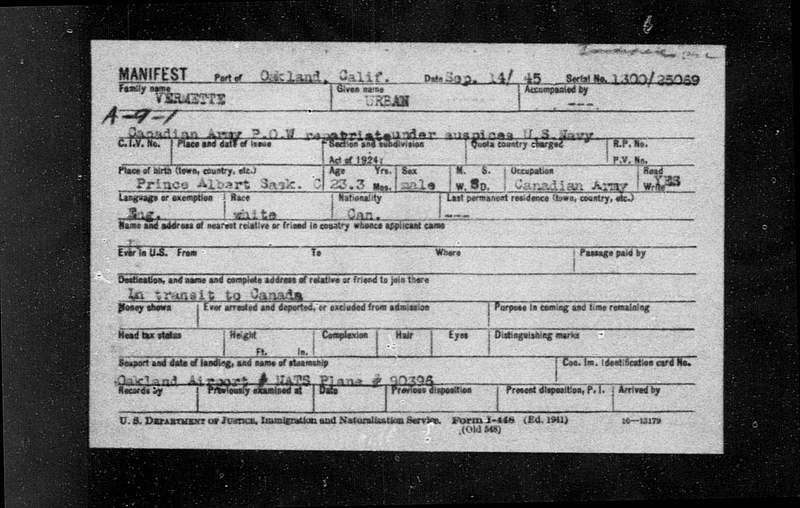 MANIFEST Port of Oakland, Calif. Date Sep. 14/ 45 Serial No. 1300/25069
Family name Given name Accompanied by
VERMETTE URBAN ---
A-9-1
Canadian Army P.O.W repatriate under auspices U.S.Navy
C.I.V. No. Place and date of issue Section and subdivision Quota country charged R.P. No.
Act of 1924: P.V. No.
Place of birth (town, country, etc.) Age Yrs. Sex M. S. Occupation Read
Prince Albert Sask. C 23.3 Mos. male W. D. Canadian Army Write YES
Language or exemption Race Nationality Last permanent residence (town, country, etc.)
Eng. white Can. ---
Name and address of nearest relative or friend in country whence applicant came
Ever in U.S. From To Where Passage paid by
Destination, and name and complete address of relative or friend to join there
In transit to Canada
Money shown Ever arrested and deported, or excluded from admission Purpose in coming and time remaining
Head tax status Height Complexion Hair Eyes Distinguishing marks
Ft. In.
Seaport and date of landing, and name of steamship Con. Im. Identification card No.
Oakland Airport NATS Plane # 90396
Records by Previously examined at Date Previous disposition Present disposition, P. I. Arrived by
U. S. DEPARTMENT OF JUSTICE, Immigration and Naturalization Service. Form I-448 (Ed. 1941) 16—13179
(Old 548)